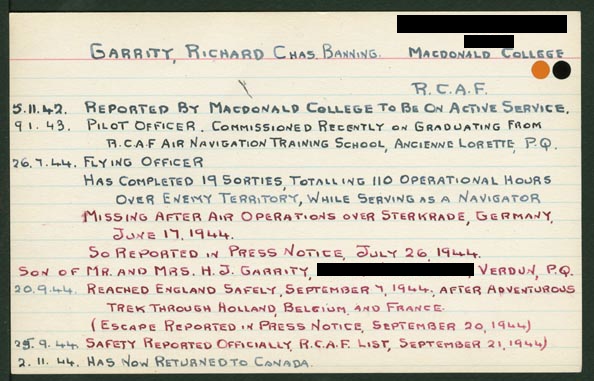 GARRITY, RICHARD CHAS. BANNING. MACDONALD COLLEGE
R.C.A.F.
5.11.42. REPORTED BY MACDONALD COLLEGE TO BE ON ACTIVE SERVICE.
9 1. 43. PILOT OFFICER. COMMISSIONED RECENTLY ON GRADUATING FROM
R.C.A.F AIR NAVIGATION TRAINING SCHOOL, ANCIENNE LORETTE, P.Q.
26.7.44. FLYING OFFICER
HAS COMPLETED 19 SORTIES, TOTALLING 110 OPERATIONAL HOURS
OVER ENEMY TERRITORY, WHILE SERVING AS A NAVIGATOR
MISSING AFTER AIR OPERATIONS OVER STERKRADE, GERMANY,
JUNE 17, 1944.
SO REPORTED IN PRESS NOTICE, JULY 26, 1944.
SON OF MR. AND MRS. H. J. GARRITY, VERDUN, P.Q.
20.9.44. REACHED ENGLAND SAFELY, SEPTEMBER 7, 1944, AFTER ADVENTUROUS
TREK THROUGH HOLLAND, BELGIUM, AND FRANCE.
(ESCAPE REPORTED IN PRESS NOTICE, SEPTEMBER 20, 1944)
25.9.44. SAFETY REPORTED OFFICIALLY, R.C.A.F. LIST, SEPTEMBER 21, 1944)
2.11.44. HAS NOW RETURNED TO CANADA.